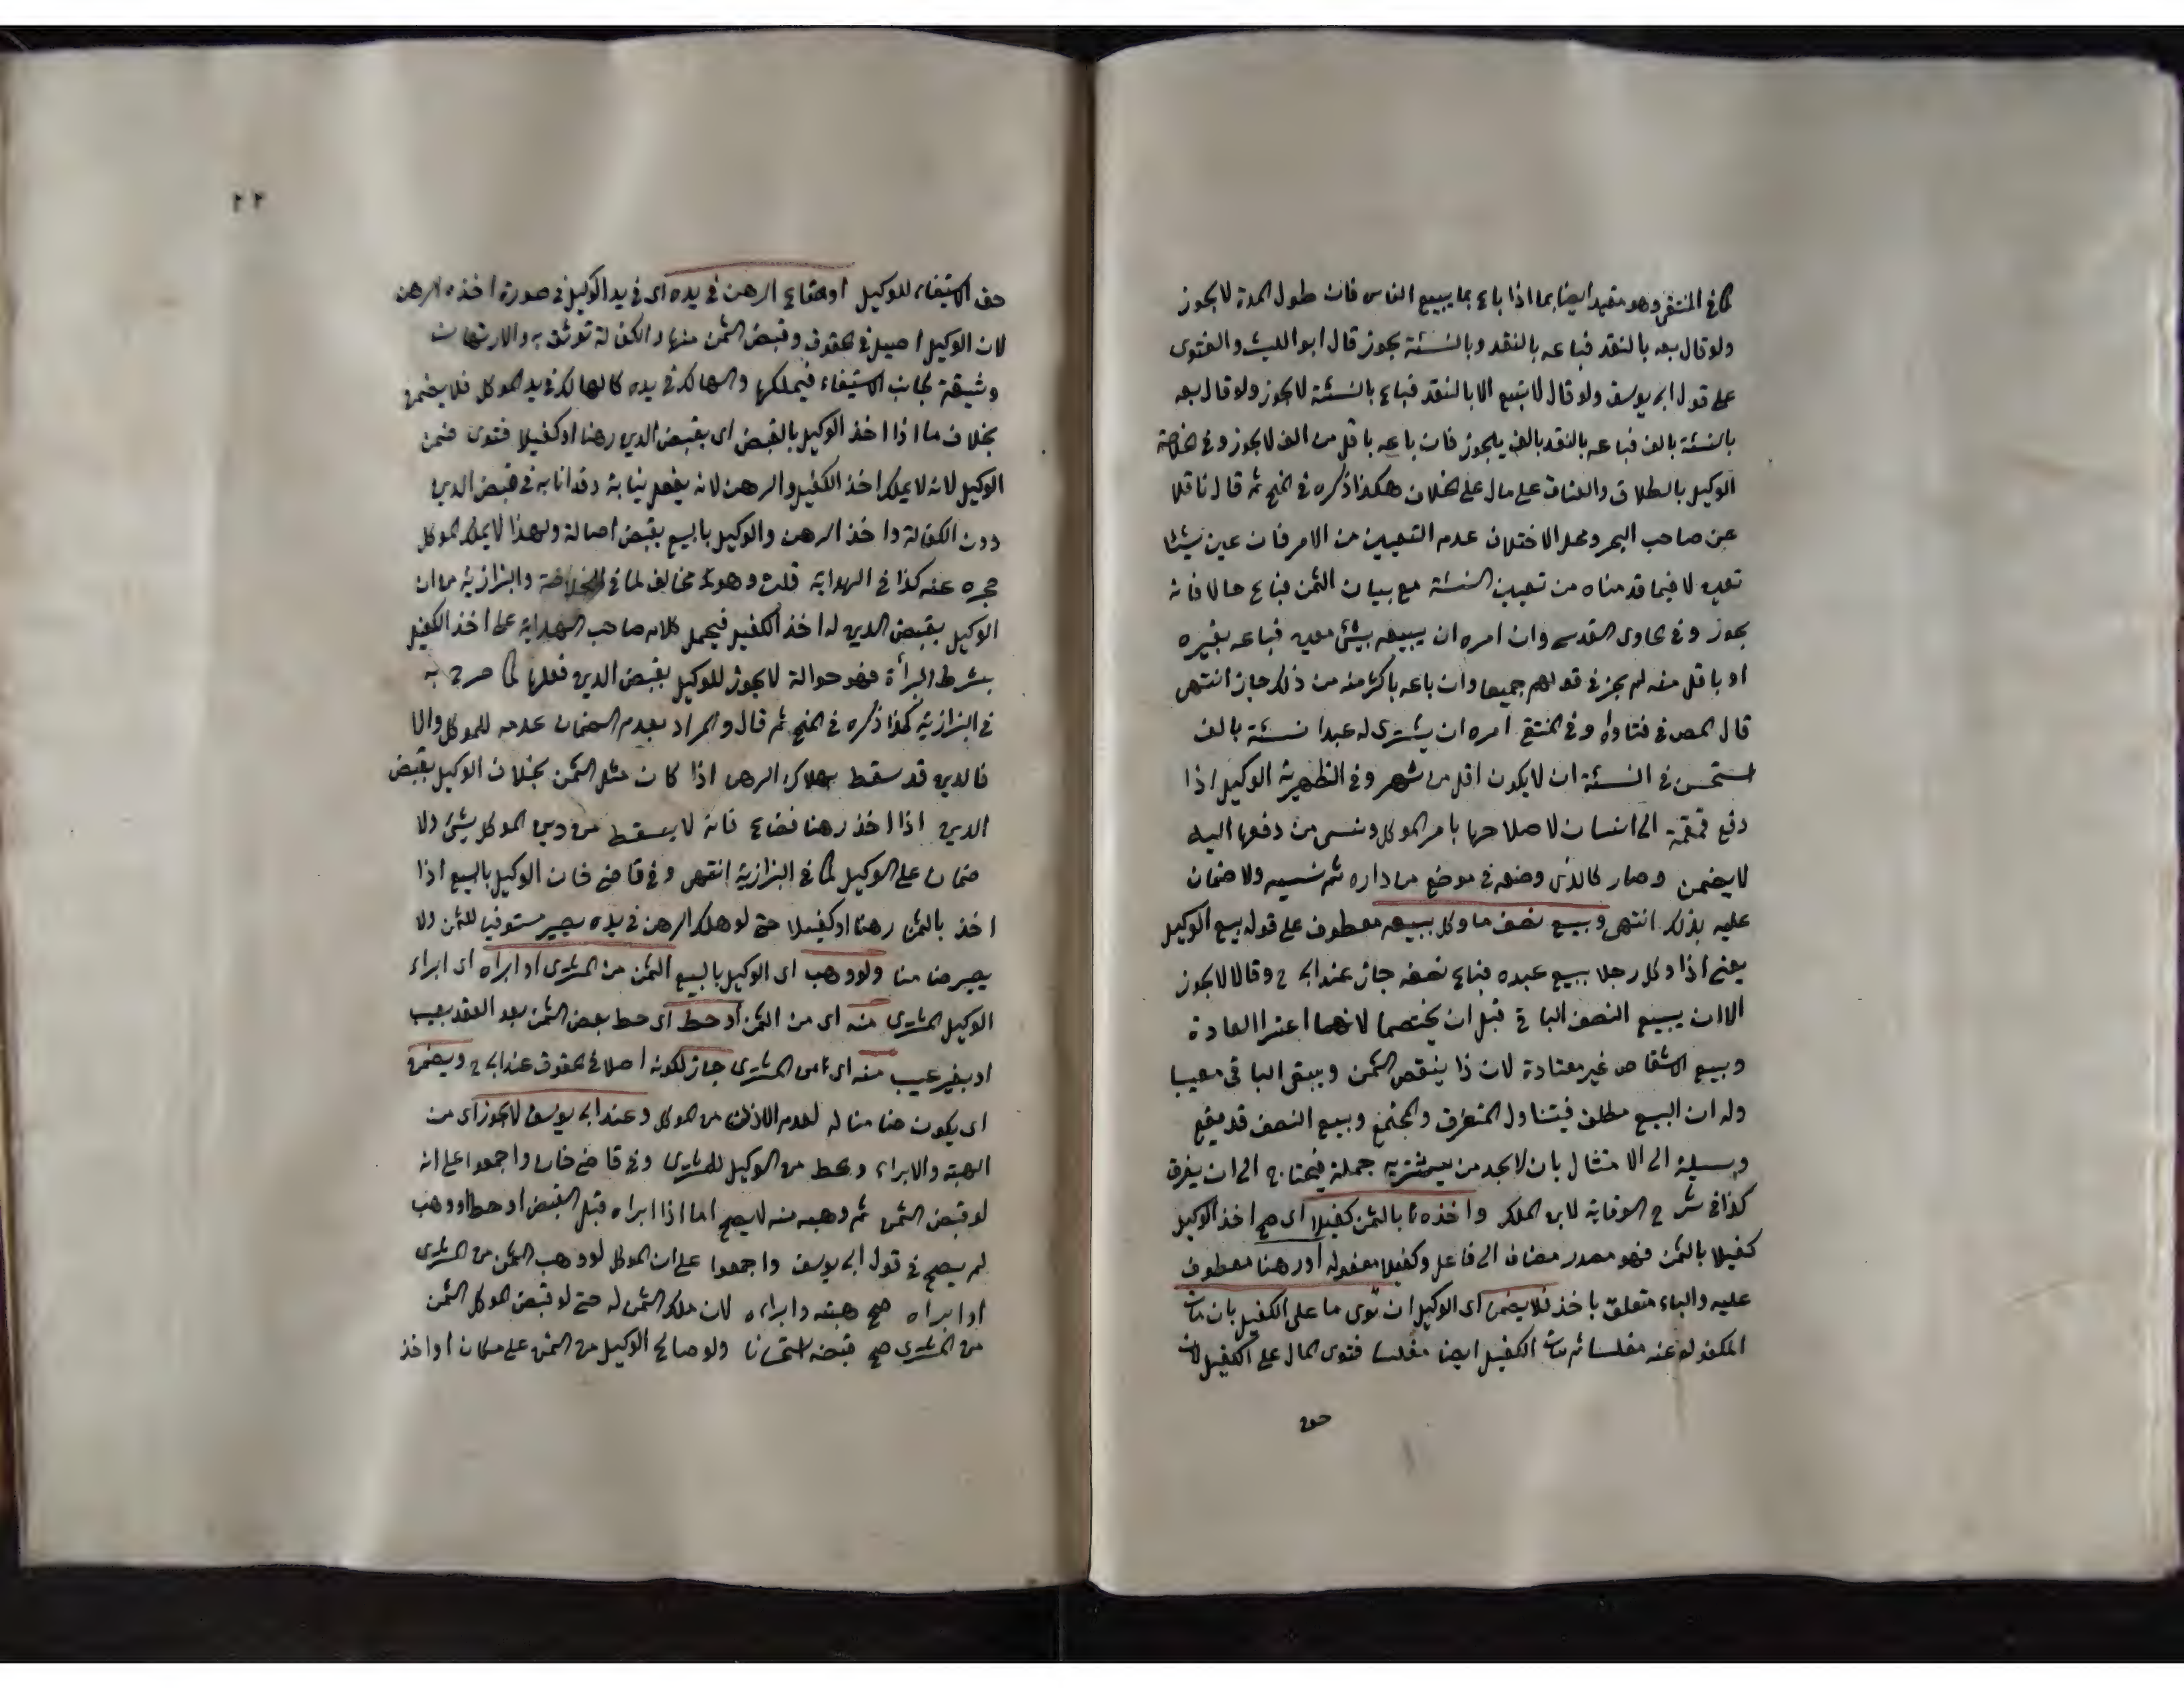 كما في المنتقى وهو مقيد ايضا بما اذا باع بما يبيع الناس فان طول المدة لا يجوز
ولو قال بعه بالنقد فباعه بالنقد وبالنسئة يجوز قال ابو الليث والفتوى
على قول ابي يوسف ولو قال لا تبع الا بالنقد فباع بالنسئة لا يجوز ولو قال بعه
بالنسئة بالف فباعه بالنقد بالف يجوز فان باعه باقل من الف لا يجوز وفي الخلاصة
الوكيل بالطلاق والعتاق على مال على الخلاف هكذا ذكره في المنح ثم قال ناقلا
عن صاحب البحر ومحل الاختلاف عدم التعيين من الامر فان عين شيئا
تعين لا فيما قدمناه من تعيين النسئة مع بيان الثمن فباع حالا فانه
يجوز وفي الحاوى القدسي وان امره ان يبيعه بشئ معين فباعه بغيره
او باقل منه لم يجز في قولهم جميعا وان باعه باكثر منه من ذلك جاز انتهى
قال المص في فتاواه وفي المنتقى امره ان يشترى له عبدا نسئة بالف
استحسن في النسئة ان لا يكون اقل من شهر وفي الظهيرية الوكيل اذا
دفع قمقمة الى انسان لاصلاحها بامر الموكل ونسى من دفعها اليه
لا يضمن وصار كالذى وضعه في موضع من داره ثم نسيه ولا ضمان
عليه بذلك انتهى وبيع نصف ما وكل ببيعه معطوف على قوله بيع الوكيل
يعنى اذا وكل رجلا ببيع عبده فباع نصفه جاز عند ابي ح وقالا لا يجوز
الا ان يبيع النصف الباقي قبل ان يختصما لانهما اعتبرا العادة
وبيع الاشقاص غير معتادة لان ذا ينقص الثمن ويبقى الباقي معيبا
وله ان البيع مطلق فيتناول المتفرق والمجتمع وبيع النصف قد يقع
وسيلة الى الامتثال بان لا يجد من يشتريه جملة فيحتاج الى ان يفرق
كذا في شرح الوقاية لابن الملك واخذه بالثمن كفيلا اى صح اخذ الوكيل
كفيلا بالثمن فهو مصدر مضاف الى فاعله وكفيلا مفعوله او رهنا معطوف
عليه والباء متعلق باخذ فلا يضمن اى الوكيل ان توى ما على الكفيل بان مات
المكفول عنه مفلسا ثم مات الكفيل ايضا مفلسا فتوى المال على الكفيل لان
حق
٢٢
حق الاستيفاء للوكيل او ضاع الرهن في يده اى في يد الوكيل في صورة اخذه الرهن
لان الوكيل اصيل في الحقوق وقبض الثمن منها والكفالة توثق به والارتهان
وثيقة لجانب الاستيفاء فيملكها والهالك في يده كالهالك في يد الموكل فلا يضمن
بخلاف ما اذا اخذ الوكيل بالقبض اى بقبض الدين رهنا او كفيلا فتوى ضمن
الوكيل لانه لا يملك اخذ الكفيل والرهن لانه يفعل نيابة وقد انابه في قبض الدين
دون الكفالة واخذ الرهن والوكيل بالبيع يقبض اصالة ولهذا لا يملك الموكل
حجره عنه كذا في الهداية قلت وهو مخالف لما في الخلاصة والبزازية من ان
الوكيل بقبض الدين له اخذ الكفيل فيحمل كلام صاحب الهداية على اخذ الكفيل
بشرط البرأة فهو حوالة لا يجوز للوكيل بقبض الدين فعلها كما صرح به
في البزازية كذا ذكره في المنح ثم قال والمراد بعدم الضمان عدمه للموكل والا
فالدين قد سقط بهلاك الرهن اذا كان مثل الثمن بخلاف الوكيل بقبض
الدين اذا اخذ رهنا فضاع فانه لا يسقط من دين الموكل شئ ولا
ضمان على الوكيل كما في البزازية انتهى وفي قاضي خان الوكيل بالبيع اذا
اخذ بالثمن رهنا او كفيلا حتى لو هلك الرهن في يده يصير مستوفيا للثمن ولا
يصير ضامنا ولو وهب اى الوكيل بالبيع الثمن من المشترى او ابراه اى ابراء
الوكيل المشترى منه اى من الثمن او حط اى حط بعض الثمن بعد العقد بعيب
او بغير عيب منه اى من المشترى جاز لكونه اصلا في الحقوق عند ابي ح ويضمن
اى يكون ضامنا له لعدم الاذن من الموكل وعند ابي يوسف لا يجوز اى من
الهبة والابراء والحط من الوكيل للمشترى وفي قاضي خان واجمعوا على انه
لو قبض الثمن ثم وهبه منه لا يصح اما اذا ابراه قبل القبض او حط او وهب
لم يصح في قول ابي يوسف واجمعوا على ان الموكل لو وهب الثمن من المشترى
او ابراه صح هبته وابراءه لان ملك الثمن له حتى لو قبض الموكل الثمن
من المشترى صح قبضه استحسانا ولو صالح الوكيل من الثمن على مكان او اخذ